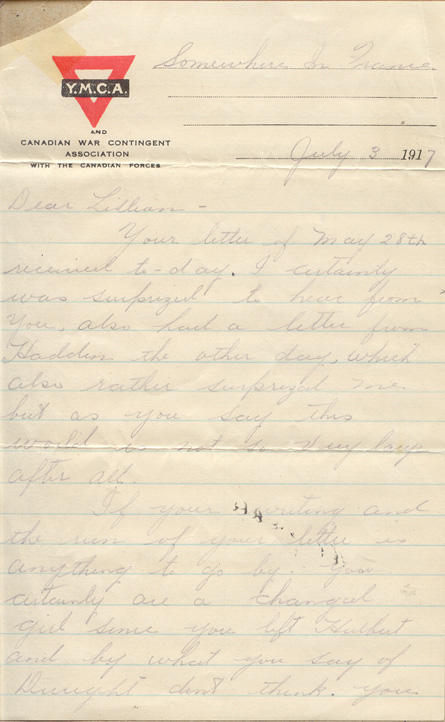 Y.M.C.A.
AND
CANADIAN WAR CONTINGENT
ASSOCIATION
WITH THE CANADIAN FORCES
Somewhere In France
July 3 1917
Dear Lillian -
Your letter of May 28th
received to-day. I certainly
was surprized to hear from
you, also had a letter from
the other day, which
also rather surprized me
but as you say this
world is not so very large
after all.
If your writing and
the run of your letter is
anything to go by. You
certainly are a changed
girl since you left Hulbert
and by what you say of
Dwight don't think you